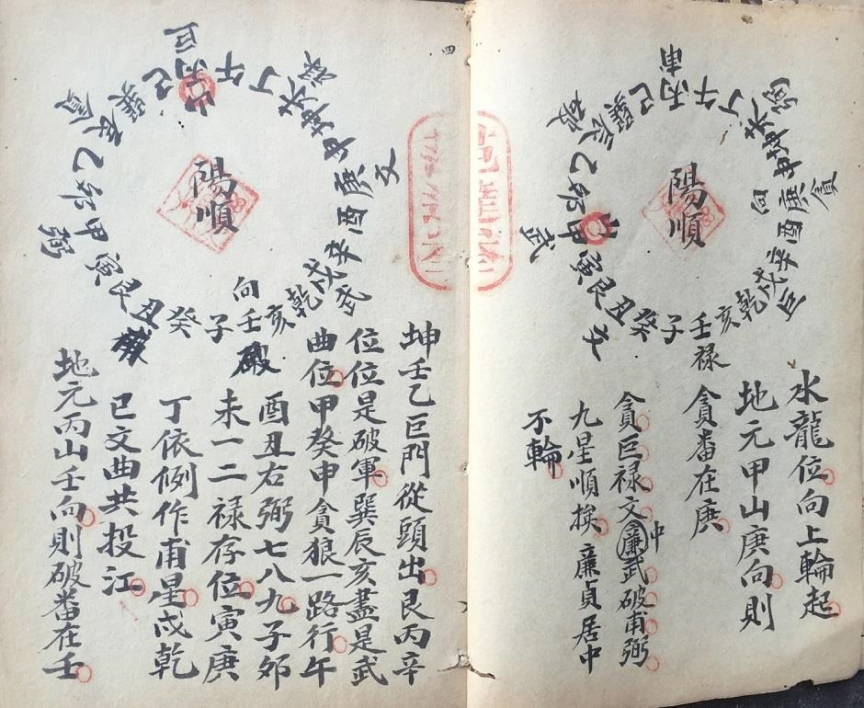 陽順
午丁未坤申庚酉辛戌乾亥壬子癸丑艮寅甲夘乙辰巽巳丙
甫
弼
貪
向
巨
禄
文
山
武
破
水龍位向上輪起
地元甲山庚向則
貪番在庚
貪巨禄文廉武破甫弼
中
九星順挨廉貞居中
不輪
陽順
午丁未坤申庚酉辛戌乾亥壬子癸丑艮寅甲夘乙辰巽巳丙
巨
山
禄
文
武
向
破
弼
貪
坤壬乙巨門從頭出艮丙辛
位位是破軍巽辰亥盡是武
曲位甲癸申貪狼一路行午
酉丑右弼七八九子夘
未一二禄存位寅庚
丁依例作甫星戌乾
已文曲共投江
地元丙山壬向則破番在壬